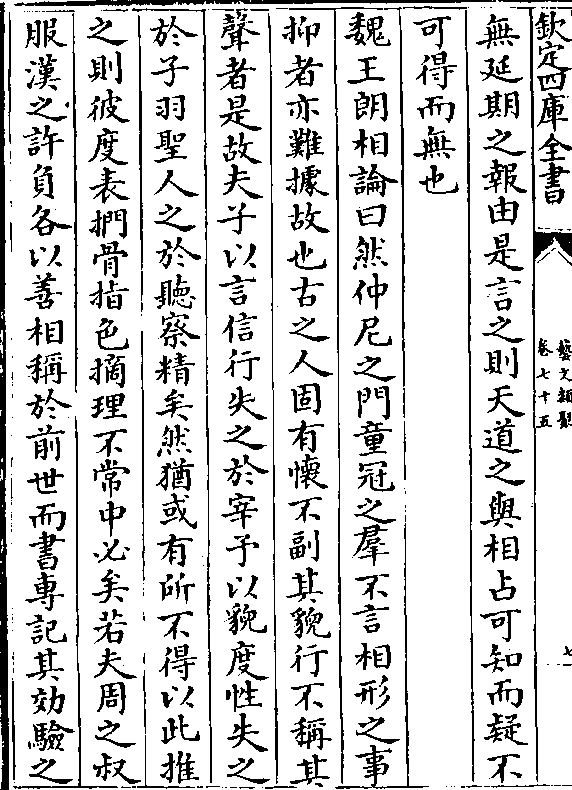 欽定四庫全書
藝文類聚
卷七十五
七
無延期之報由是言之則天道之與相占可知而疑不
可得而無也
魏王朗相論曰然仲尼之門童冠之羣不言相形之事
抑者亦難據故也古之人固有懷不副其貌行不稱其
聲者是故夫子以言信行失之於宰予以貌度性失之
於子羽聖人之於聽察精矣然猶或有所不得以此推
之則彼度表捫骨指色摘理不常中必矣若夫周之叔
服漢之許負各以善相稱於前世而書專記其効驗之